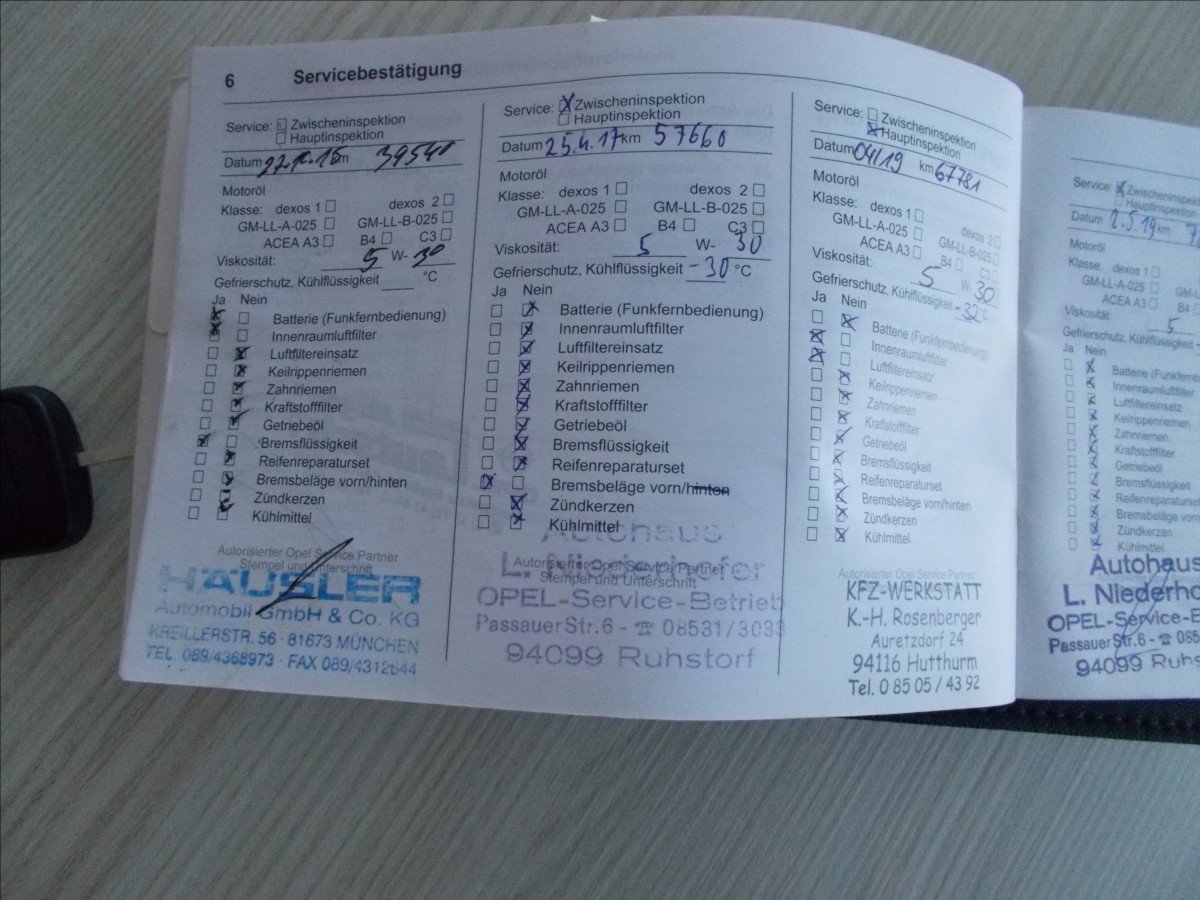 6 Servicebestätigung
Service: Zwischeninspektion
Hauptinspektion
Datum km 39540
Motoröl
Klasse: dexos 1 dexos 2
GM-LL-A-025 GM-LL-B-025
ACEA A3 B4 C3
Viskosität: 5 W- 30
Gefrierschutz, Kühlflüssigkeit °C
Ja Nein
Batterie (Funkfernbedienung)
Innenraumluftfilter
Luftfiltereinsatz
Keilrippenriemen
Zahnriemen
Kraftstofffilter
Getriebeöl
Bremsflüssigkeit
Reifenreparaturset
Bremsbeläge vorn/hinten
Zündkerzen
Kühlmittel
Autorisierter Opel Service Partner
Stempel und Unterschrift
HÄUSLER
Automobil GmbH & Co. KG
KREILLERSTR. 56 · 81673 MÜNCHEN
TEL. 089/4368973 · FAX 089/4312644
Service: Zwischeninspektion
Hauptinspektion
Datum 25.4.17 km 57660
Motoröl
Klasse: dexos 1 dexos 2
GM-LL-A-025 GM-LL-B-025
ACEA A3 B4 C3
Viskosität: 5 W- 30
Gefrierschutz, Kühlflüssigkeit -30 °C
Ja Nein
Batterie (Funkfernbedienung)
Innenraumluftfilter
Luftfiltereinsatz
Keilrippenriemen
Zahnriemen
Kraftstofffilter
Getriebeöl
Bremsflüssigkeit
Reifenreparaturset
Bremsbeläge vorn/hinten
Zündkerzen
Kühlmittel
Autorisierter Opel Service Partner
Stempel und Unterschrift
Autohaus
L. Niederhofer
OPEL-Service-Betrieb
Passauer Str. 6 - ☎ 08531/3033
94099 Ruhstorf
Service: Zwischeninspektion
Hauptinspektion
Datum 04/19 km 67781
Motoröl
Klasse: dexos 1 dexos 2
GM-LL-A-025 GM-LL-B-025
ACEA A3 B4 C3
Viskosität: 5 W- 30
Gefrierschutz, Kühlflüssigkeit -32 °C
Ja Nein
Batterie (Funkfernbedienung)
Innenraumluftfilter
Luftfiltereinsatz
Keilrippenriemen
Zahnriemen
Kraftstofffilter
Getriebeöl
Bremsflüssigkeit
Reifenreparaturset
Bremsbeläge vorn/hinten
Zündkerzen
Kühlmittel
Autorisierter Opel Service Partner
KFZ-WERKSTATT
K.-H. Rosenberger
Auretzdorf 24
94116 Hutthurm
Tel. 0 85 05 / 43 92
Service: Zwischeninspe
Hauptinspektion
Datum 2.5.19 km 7
Motoröl
Klasse: dexos 1
GM-LL-A-025 GM
ACEA A3 B4
Viskosität: 5
Gefrierschutz, Kühlflüssigkeit
Ja Nein
Batterie (Funkfernb
Innenraumluftfilter
Luftfiltereinsatz
Keilrippenriemen
Zahnriemen
Kraftstofffilter
Getriebeöl
Bremsflüssigkeit
Reifenreparaturset
Bremsbeläge vorn/hinten
Zündkerzen
Kühlmittel
Autohaus
L. Niederho
OPEL-Service-B
Passauer Str. 6 - ☎ 085
94099 Ruhs